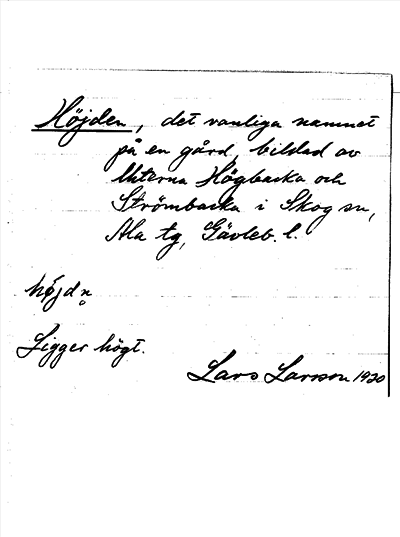 Höjden, det vanliga namnet
på en gård, bildad av
lhterna Högbacka och
Strömbacka i Skog sn,
Ala tg, Gävleb. l.
höjdn̥
Ligger högt.
Lars Larsson 1920